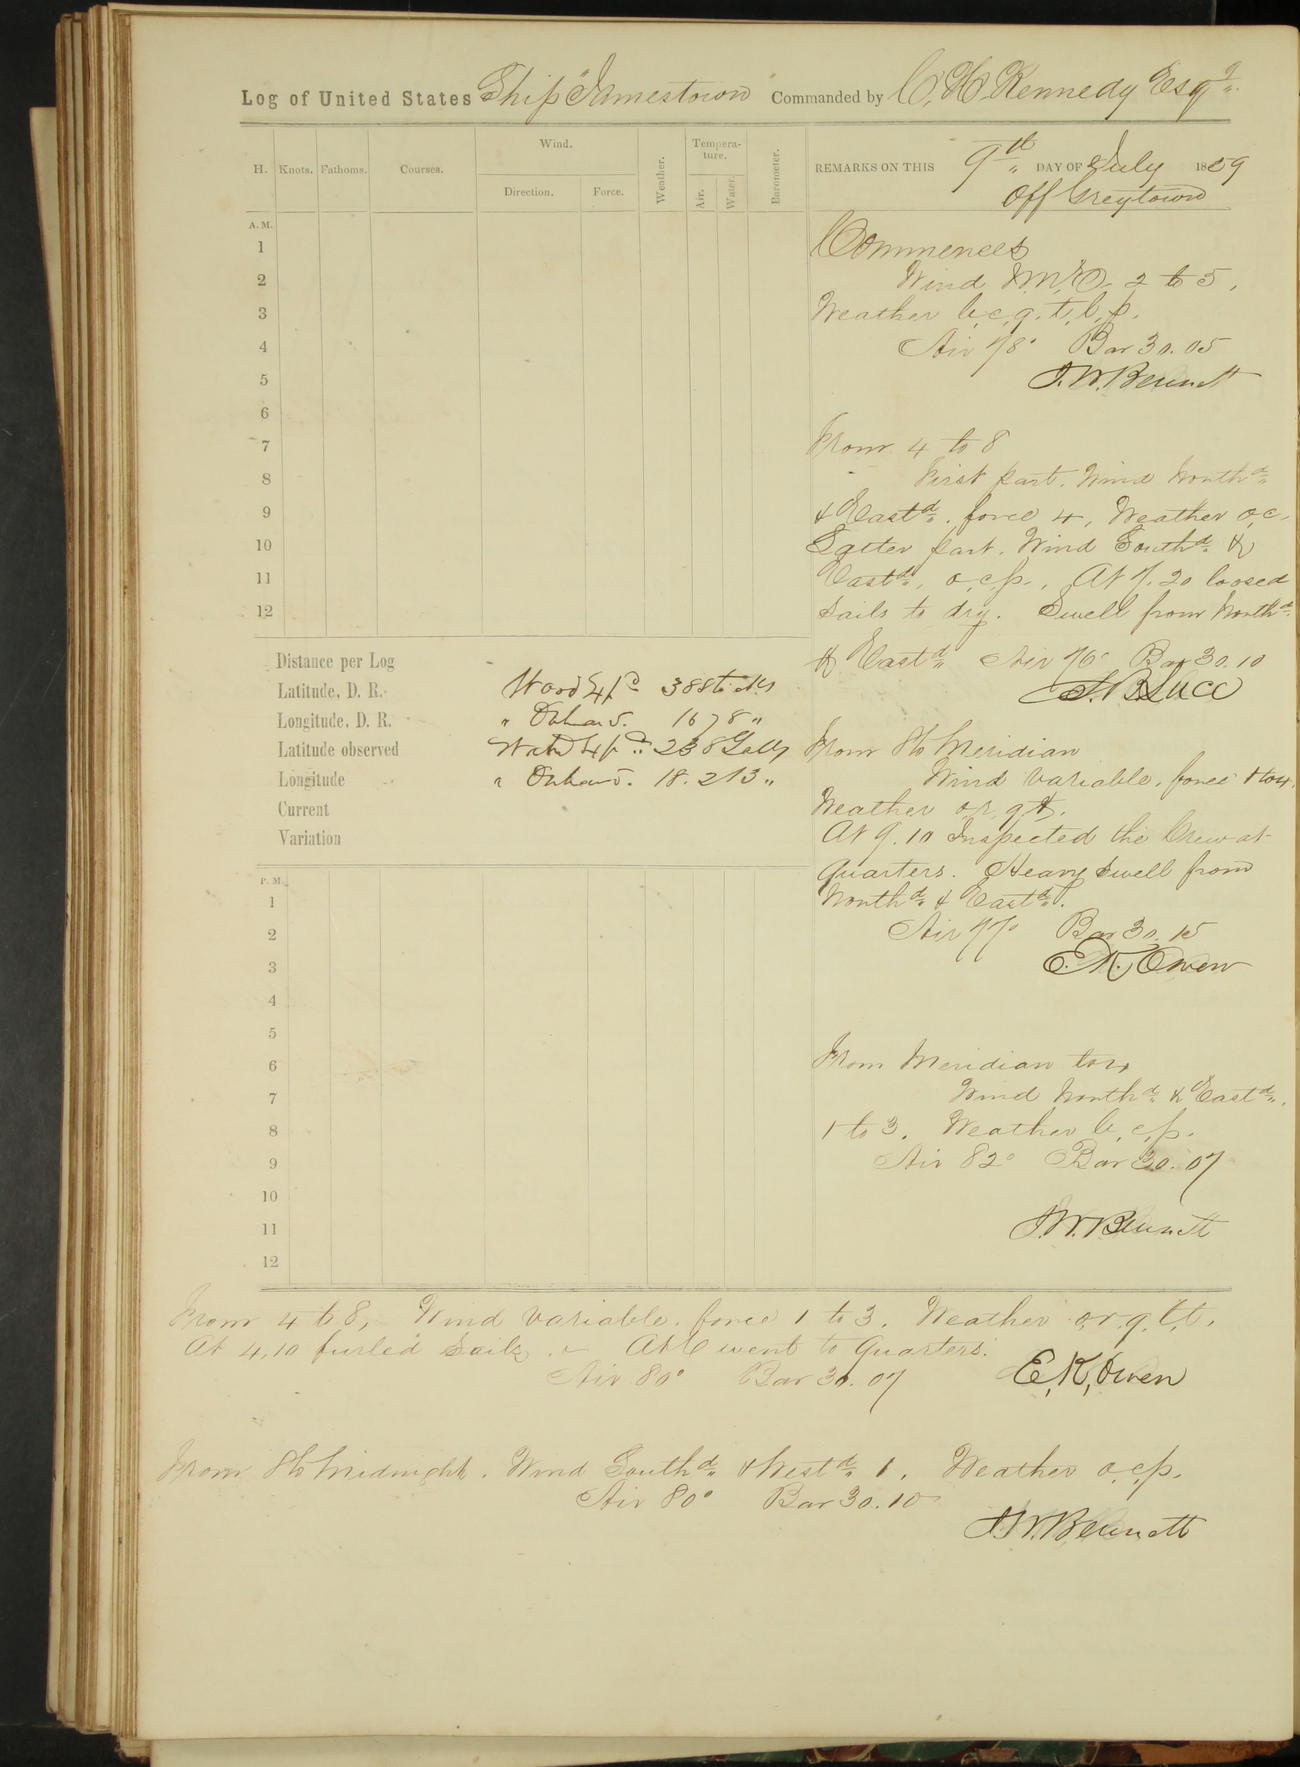 Log of United States Ship "Jamestown" Commanded by C. H. Kennedy Esqr.
H. Knots. Fathoms. Courses. Wind. Direction. Force. Weather. Tempera-ture. Air. Water. Barometer.
REMARKS ON THIS 9th DAY OF July 1859
Off Greytown
A. M.
1
2
3
4
5
6
7
8
9
10
11
12
Commences
Wind 2 to 5.
Weather b,c,q,t,l,p.
Air 78° Bar 30.05
J. W. Bennett
From 4 to 8
First part. Wind Northd
& Eastd. force 4, Weather o,c,
Latter part. Wind Southd &
Eastd, o,c,p., At 7.20 loosed
sails to dry. Swell from Northd
& Eastd Air 76° Bar 30.10
S. B. Luce
Distance per Log
Latitude, D. R.
Longitude, D. R.
Latitude observed
Longitude
Current
Variation
Wood Expd 388 sticks
" On hand. 1678 "
Water Expd 238 Galls
" On hand. 18.213 "
From 8 to Meridian
Wind variable, force 1 to 4.
Weather o,r,q,t.
At 9.10 Inspected the Crew at
quarters. Heavy swell from
Northd & Eastd.
Air 77° Bar 30.15
E. K. Owen
P. M.
1
2
3
4
5
6
7
8
9
10
11
12
From Meridian to 4
Wind Northd & Eastd.
1 to 3. Weather b,c,p.
Air 82° Bar 30.07
J. W. Bennett
From 4 to 8, Wind variable, force 1 to 3. Weather o,r,q,l,t.
At 4.10 furled Sails. At 6 went to Quarters.
Air 80° Bar 30.07 E. K. Owen
From 8 to Midnight. Wind Southd & Westd 1. Weather o,c,p.
Air 80° Bar 30.10
J. W. Bennett